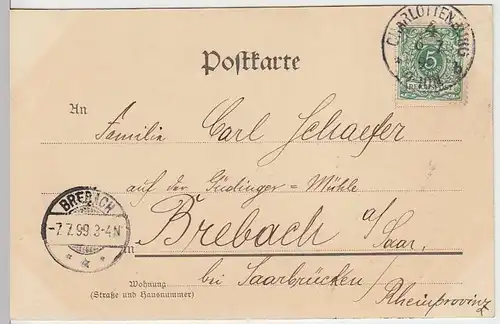 CHARLOTTENBURG
5
Postkarte
An
Familie Carl Schaefer
auf der Güdinger=Mühle
BREBACH
-7.7.99.3-4N
Brebach a/
Saar,
in
bei Saarbrücken/
Wohnung
(Straße und Hausnummer)
Rheinprovinz